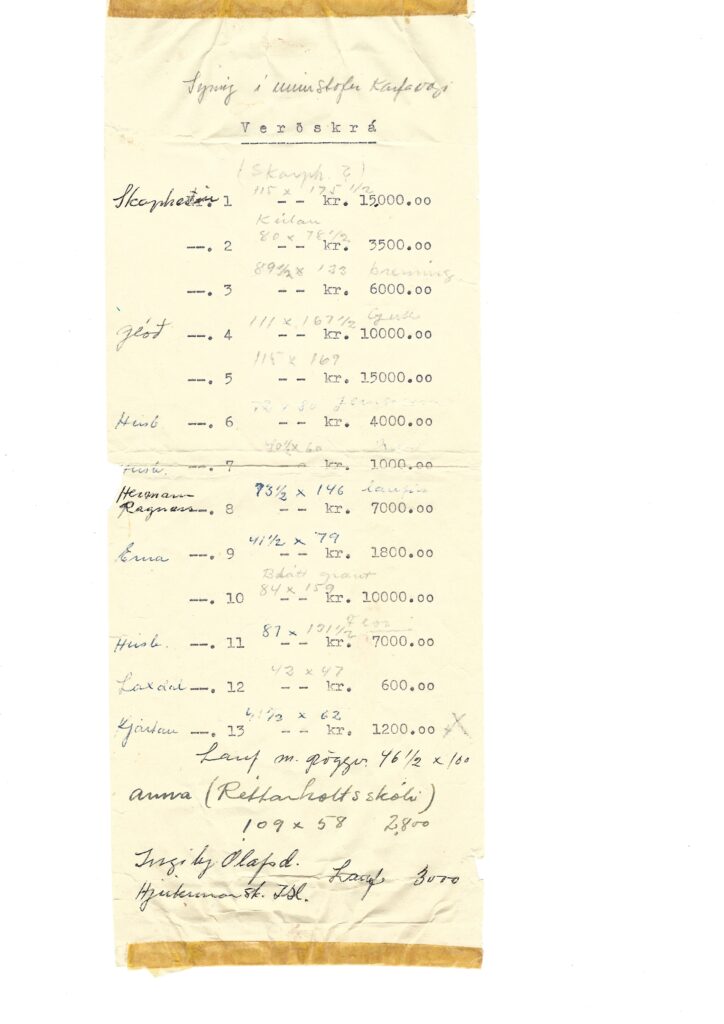 Sýning í vinnustofu Karfavogi
Verðskrá
(Skarph. ?)
115 x 175 1/2
nr. 1 -- kr. 15000.00
80 x 78 1/2
--. 2 -- kr. 3500.00
89 1/2 x 133 brenning
--. 3 -- kr. 6000.00
111 x 167 1/2
Glóð --. 4 -- kr. 10000.00
115 x 169
--. 5 -- kr. 15000.00
72 x 80
Húsb --. 6 -- kr. 4000.00
x 60
Húsb. --. 7 -- kr. 1000.00
Hermann 73 1/2 x 146
Ragnars --. 8 -- kr. 7000.00
41 1/2 x 79
Erna --. 9 -- kr. 1800.00
Blátt grant
84 x 159
--. 10 -- kr. 10000.00
87 x 131 1/2
Húsb. --. 11 -- kr. 7000.00
42 x 47
Laxdal --. 12 -- kr. 600.00
41 1/2 x 62
Kjartan --. 13 -- kr. 1200.00 X
Lauf m. röggv. 46 1/2 x 100
Anna (Réttarholtsskóli)
109 x 58 2,800
Ingibj Ólafsd. Lauf 3000
Hjúkrunarsk. Ísl.